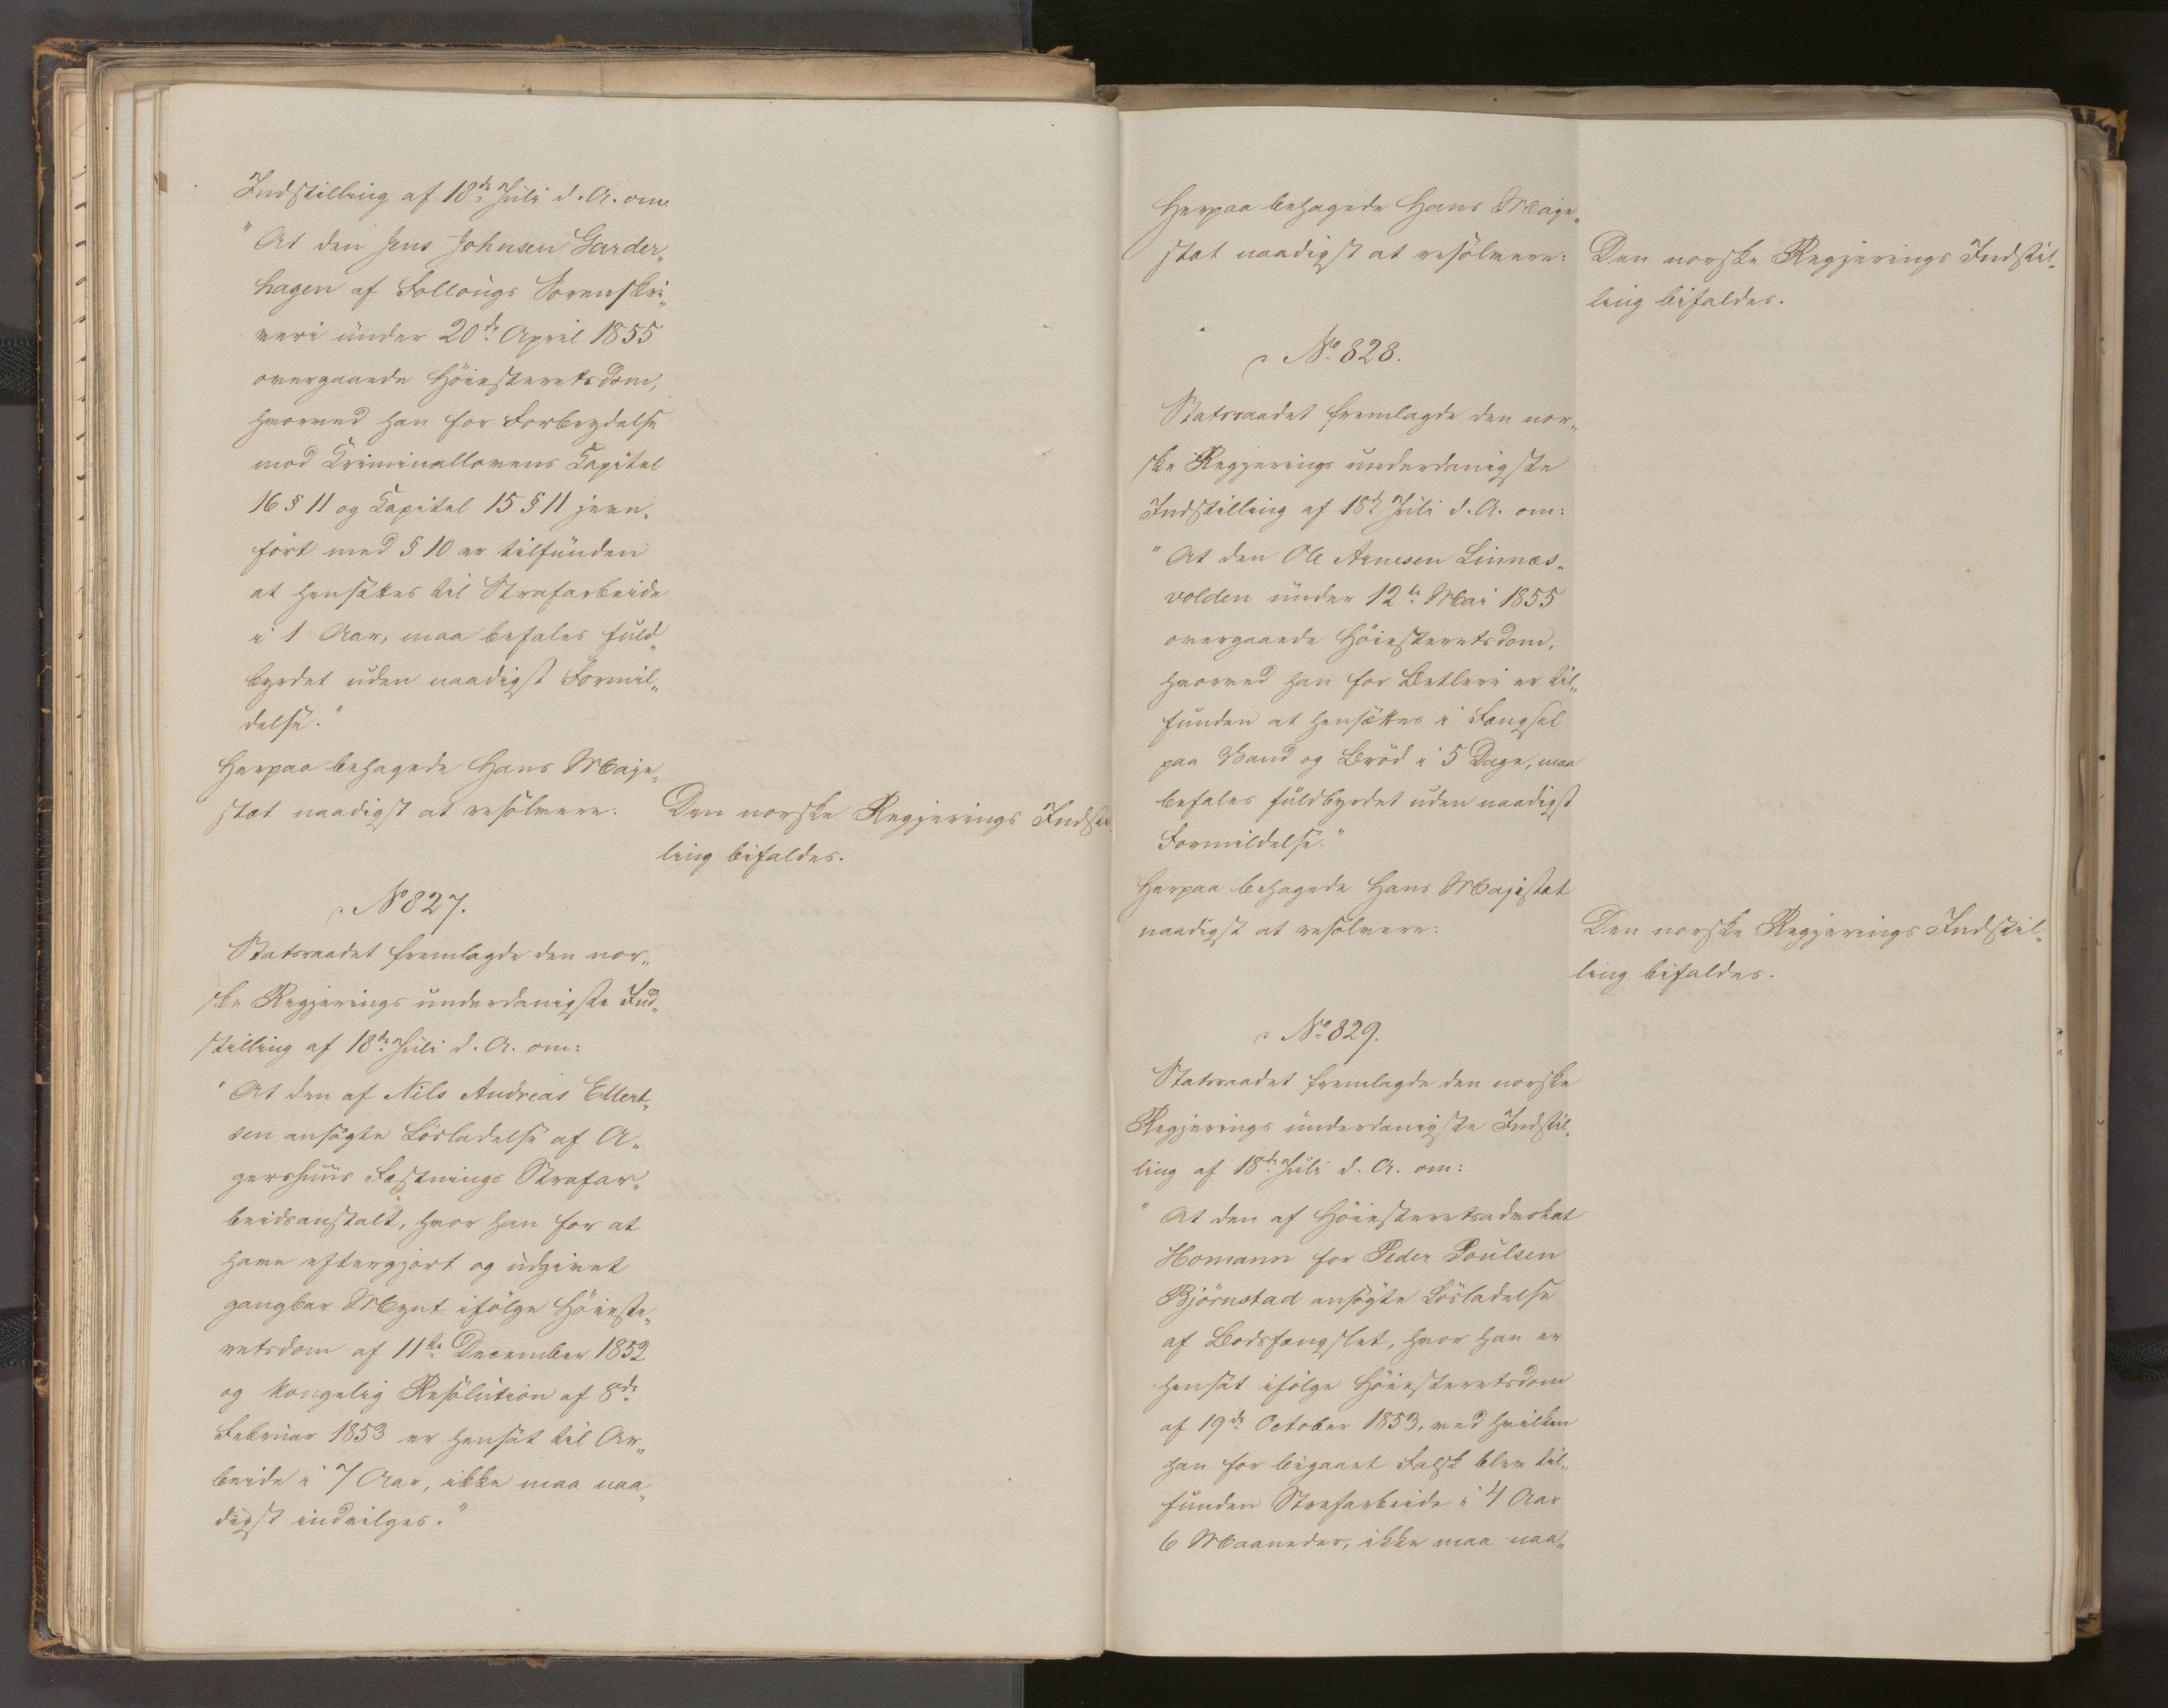 Indstilling af 18de Juli d. A. om
"At den Jens Johnsen Garder„
hagen af Follougs Sorenskri„
veri under 20de April 1855
overgaaede Höiesteretsdom,
hvorved han for Forbrydelse
mod Kriminallovens Kapitel
16 § 11 og Kapitel 15 § 11 jevn„
fört med § 10 er tilfunden
at hensættes til Strafarbeide
i 1 Aar, maa befales fuld„
byrdet uden naadigst Formil„
delse."
Herpaa behagede Hans Maje„
stæt naadigst at resolvere:
Den norske Regjerings Indstil
ling bifaldes.
No 827.
Statsraadet fremlagde den nor„
ske Regjerings underdanigste Ind„
stilling af 18de Juli d. A. om:
"At den af Nils Andreas Ellert„
sen ansøgte Lösladelse af A„
gershuus Fæstnings Strafar„
beidsanstalt, hvor han for at
have eftergjort og udgivet
gangbar Mynt ifölge Höieste„
retsdom af 11te December 1852
og kongelig Resolution af 8de
Februar 1853 er hensat til Ar„
beide i 7 Aar, ikke maa naa„
digst indvilges."
Herpaa behagede Hans Maje„
stæt naadigst at resolvere:
Den norske Regjerings Indstil„
ling bifaldes.
No 828.
Statsraadet fremlagde den nor„
ske Regjerings underdanigste
Indstilling af 18de Juli d. A. om:
"At den Ole Arnesen Linnæs„
volden under 12te Mai 1855
overgaaede Höiesteretsdom,
hvorved han for Betleri er til„
funden at hensættes i Fængsel
paa Vand og Bröd i 5 Dage, maa
befales fuldbyrdet uden naadigst
Formildelse."
Herpaa behagede Hans Majestæt
naadigst at resolvere:
Den norske Regjerings Indstil„
ling bifaldes.
No 829.
Statsraadet fremlagde den norske
Regjerings underdanigste Indstil„
ling af 18de Juli d. A. om:
"At den af Höiesteretsadvokat
Homann for Peder Poulsen
Björnstad ansögte Lösladelse
af Bodsfængslet, hvor han er
hensat ifölge Höiesteretsdom
af 19de October 1853, ved hvilken
han for begaaet Falsk blev til„
funden Strafarbeide i 4 Aar
6 Maaneder, ikke maa naa„